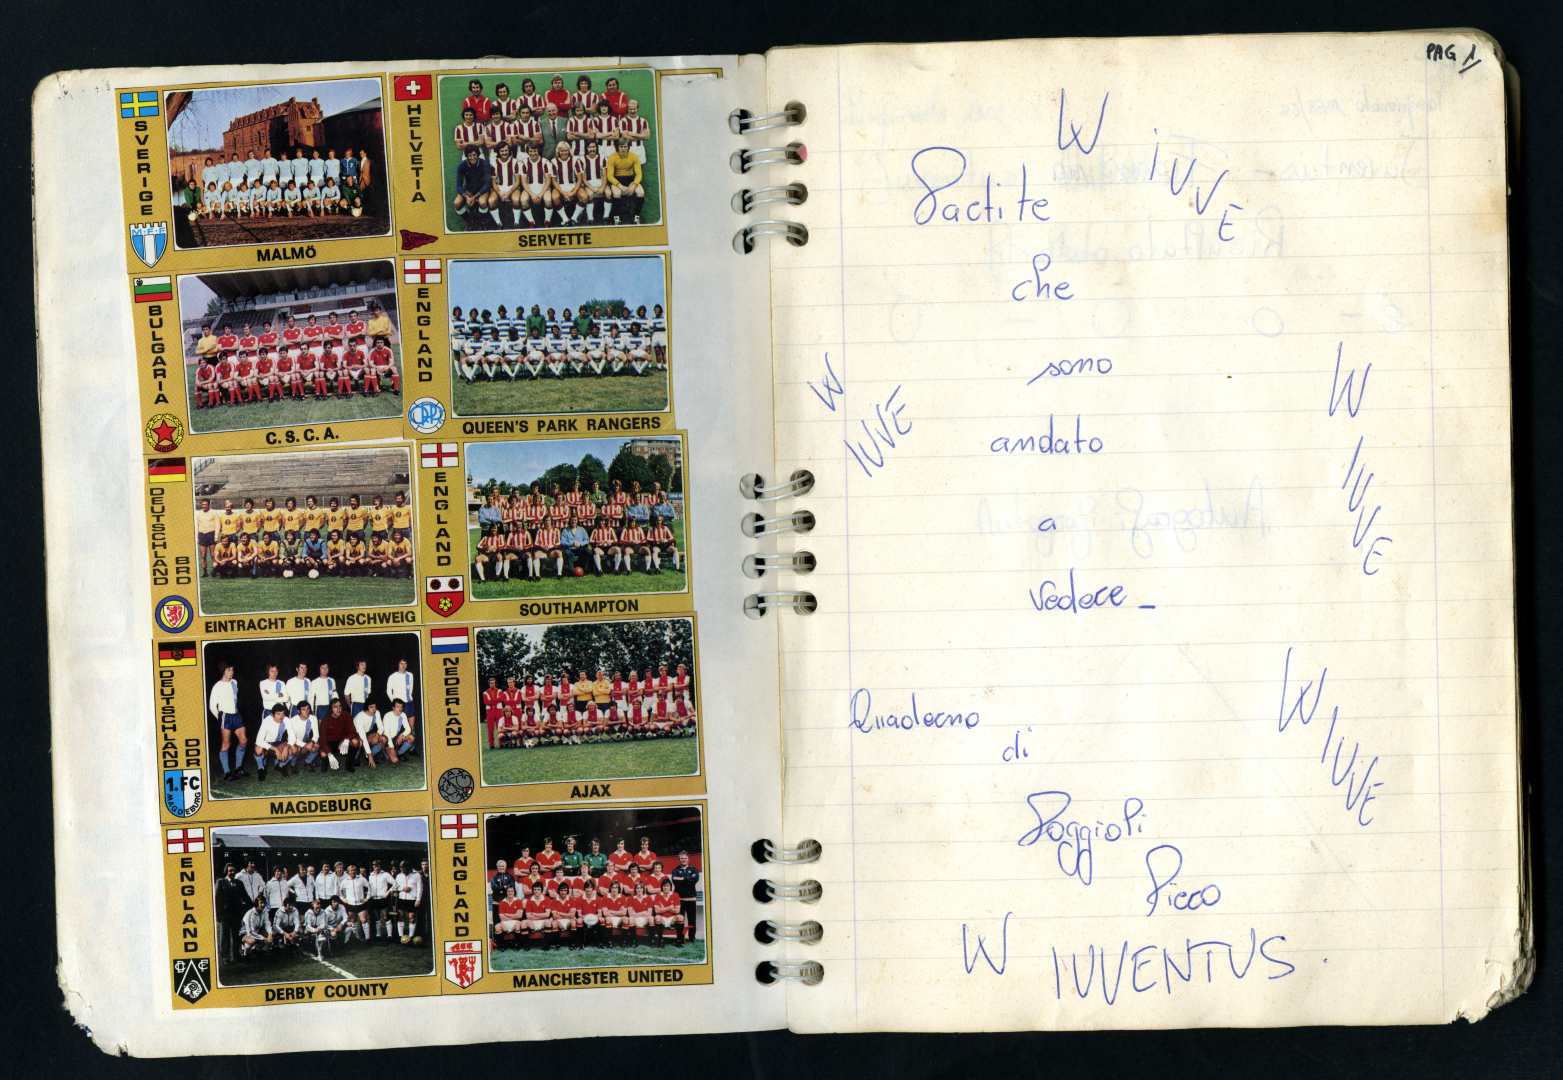 SVERIGE
M.F.F
MALMÖ
HELVETIA
SERVETTE
BULGARIA
C.S.C.A.
ENGLAND
QPR
QUEEN'S PARK RANGERS
DEUTSCHLAND BRD
EINTRACHT BRAUNSCHWEIG
ENGLAND
SOUTHAMPTON
DEUTSCHLAND DDR
1.FC
MAGDEBURG
MAGDEBURG
NEDERLAND
AJAX
AJAX
ENGLAND
DCFC
DERBY COUNTY
ENGLAND
MANCHESTER UNITED
PAG 1
W IUVE
Partite
che
sono
andato
a
vedere_
W IUVE
W IUVE
Quaderno
di
Poggioli
Picco
W IUVE
W IUVENTUS.